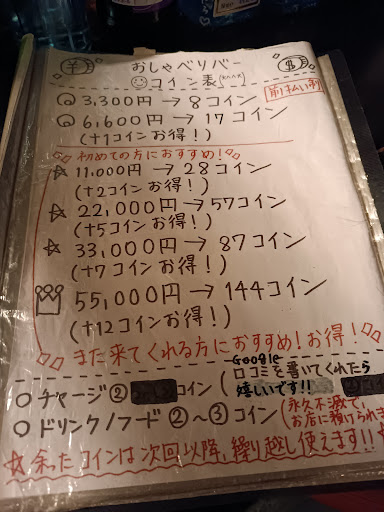 おしゃべりバー
コイン表
前払い制
3,300円→8コイン
6,600円→17コイン
(+1コインお得!)
初めての方におすすめ!
11,000円→28コイン
(+2コインお得!)
22,000円→57コイン
(+5コインお得!)
33,000円→87コイン
(+7コインお得!)
55,000円→144コイン
(+12コインお得!)
また来てくれる方におすすめ!お得!
○チャージ② コイン(Google口コミを書いてくれたら嬉しいです!!
○ドリンク/フード②~③コイン(永久不滅で、お店に預けられま
☆余ったコインは次回以降、繰り越し使えます!!☆